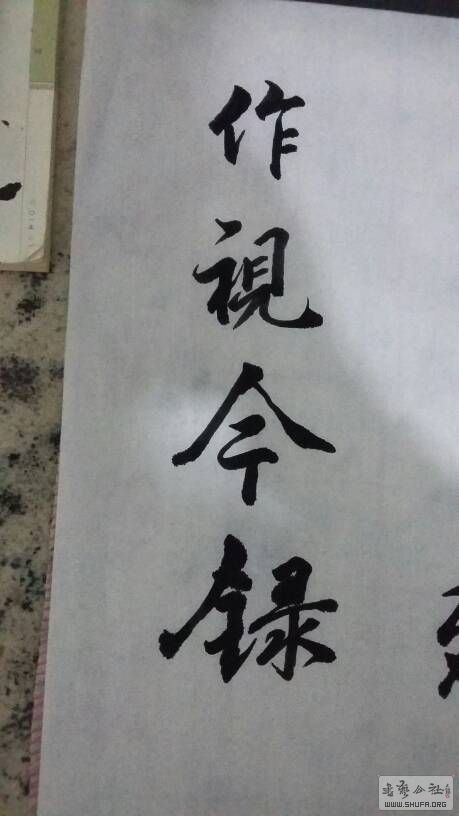 作視今録
書藝公社
WWW.SHUFA.ORG